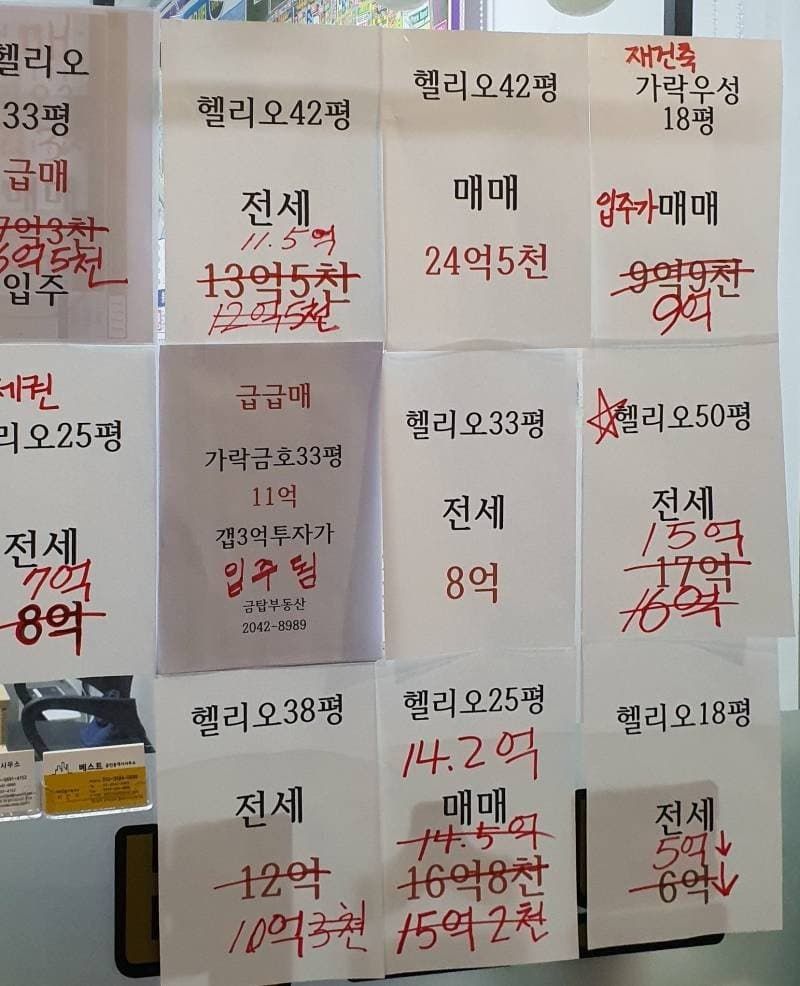 헬리오
33평
급매
7억3천
6억5천
입주
헬리오42평
전세
11.5억
13억5천
12억5천
헬리오42평
매매
24억5천
재건축
가락우성
18평
입주가매매
9억9천
9억
세권
리오25평
전세
7억
8억
급급매
가락금호33평
11억
갭3억투자가
입주됨
금탑부동산
2042-8989
헬리오33평
전세
8억
☆헬리오50평
전세
15억
17억
16억
헬리오38평
전세
12억
10억3천
헬리오25평
14.2억
매매
14.5억
16억8천
15억2천
헬리오18평
전세
5억↓
6억↓
사무소
베스트 공인중개사사무소